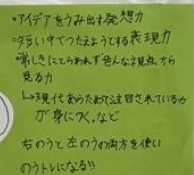 ・アイデアをうみ出す発想力
・短い中でつたえようとする表現力
・常しきにとらわれず色んな視点から
見る力
↳現代あらためて注目されている力
が身につく。など
右のうと左のうの両方を使い
のうトレになる!!